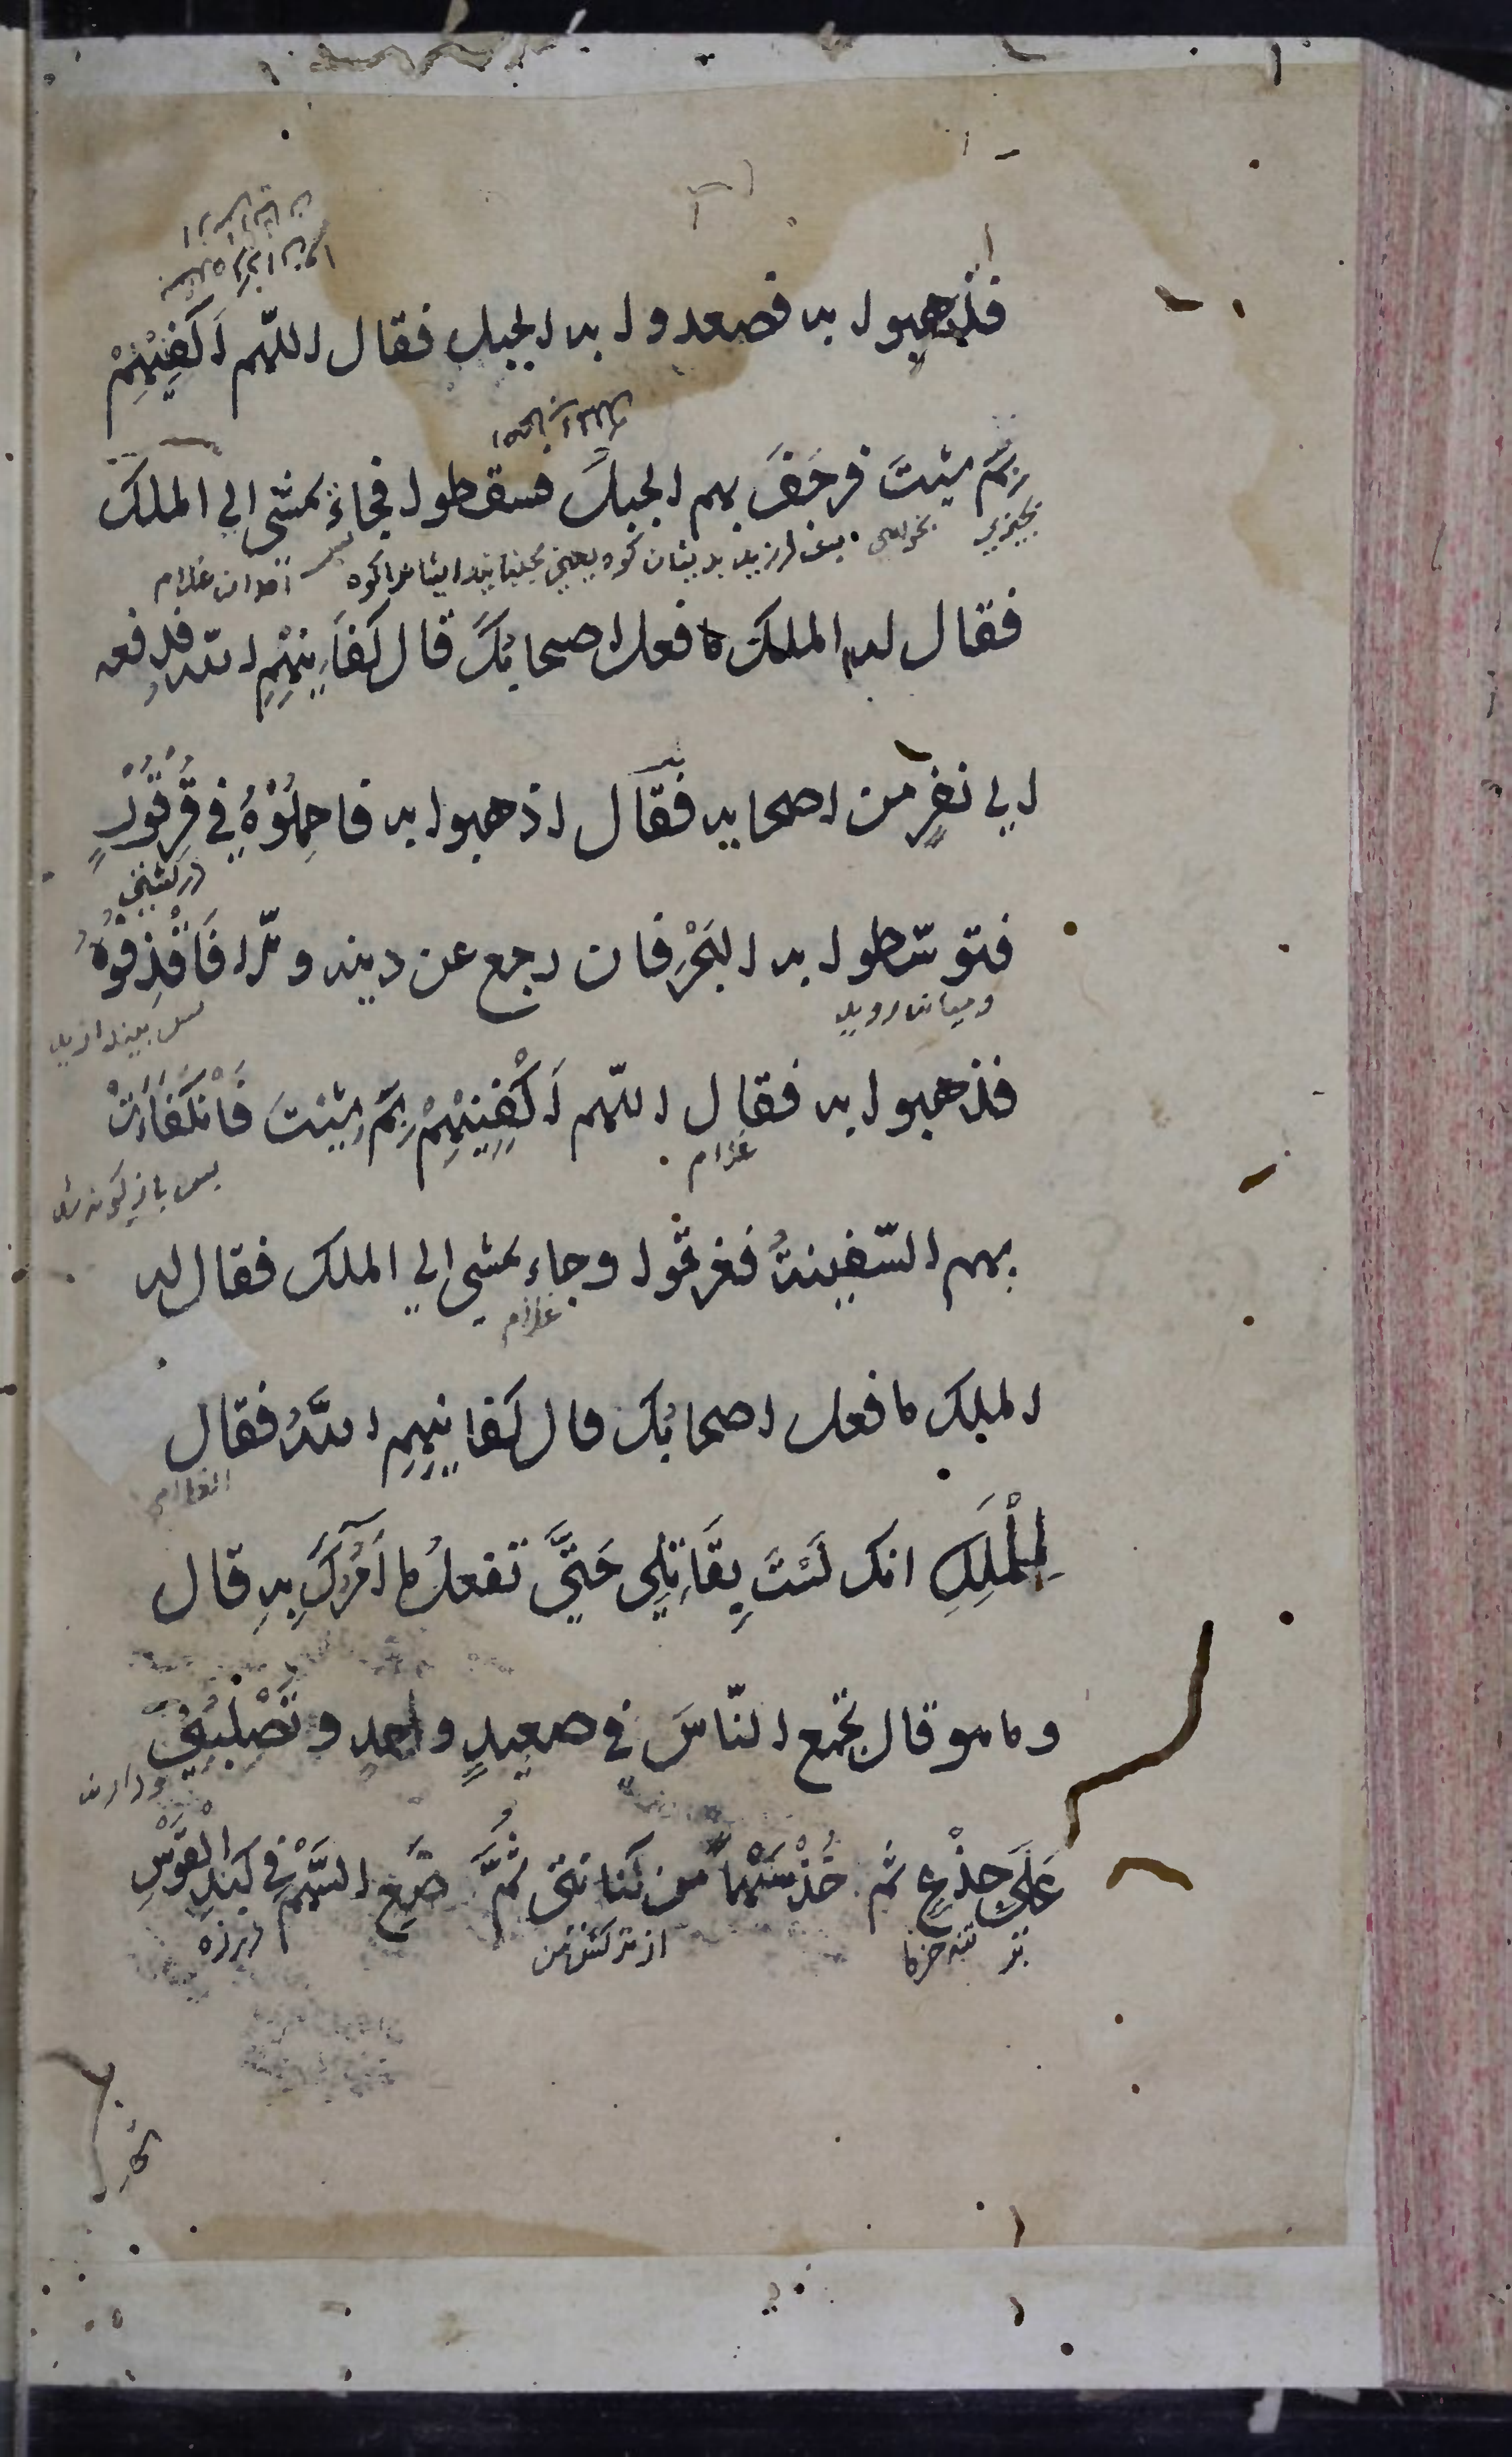 فذهبوا به فصعدوا به الجبل فقال اللّهم اَكْفِنِيْهِمْ
بِمَ شِئتَ فرجَفَ بهم الجبلُ فسقطوا فجاءَ يمشى الي الملك
بلرزيد بديشان كوه يعني بجنبانيد ايشانرا كوه
فقال له الملك ما فعل اصحابُكَ قال كفَانِيْهِمِ اللّه فدفعه
الي نفرٍ من اصحابه فقال اذهبوا به فاحْمِلُوْهُ في قُرْقُوْرٍ
در كشتي
فتوسّطوا به البَحْرِ فان رجع عن دينه والّا فَاقْذِفُوْهُ
پس بيندازيد
فذهبوا به فقال اللّهم اَكْفِنِيْهِمْ بِمَ شِئتَ فَانْكَفَاَتْ
غلام
بهم السّفينةُ فغرقُوا وجاء يمشي الي الملك فقال له
غلام
الملِك ما فعل اصحابُك قال كفانِيهِمِ اللَّهُ فقال
الغلام
لِلْمَلِكِ انك لَسْتَ بِقَاتِلِي حَتَّي تفعلُ ما اَمُرُكَ بِهِ قال
وما هو قال تجمع النّاسَ في صعيدٍ واحدٍ وتَصْلُبُنِي
عَلَي جِذْعٍ ثم خُذْ سَهْمًا من كنانتى ثُمَّ ضَعِ السَّهْمَ في كبدِ الْقَوْسِ
بر تنه خرما
از تركش من
در زه